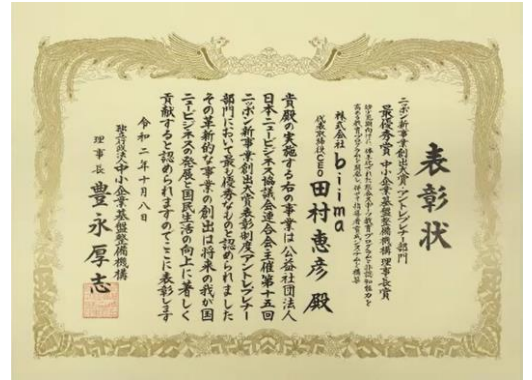 表彰状
ニッポン新事業創出大賞・アントレプレナー部門
最優秀賞 中小企業基盤整備機構理事長賞
株式会社 biima
代表取締役CEO 田村恵彦 殿
貴殿の実施する右の事業は公益社団法人
日本ニュービジネス協議会連合会主催第十五回
ニッポン新事業創出大賞表彰制度アントレプレナー
部門において最も優秀なものと認められました
その革新的な事業の創出は将来の我が国
ニュービジネスの発展と国民生活の向上に著しく
貢献すると認められますのでここに表彰します
令和二年十月八日
独立行政法人中小企業基盤整備機構
理事長 豊永厚志